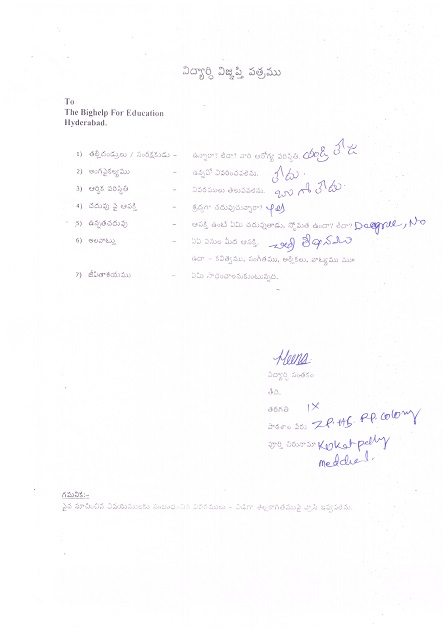 విద్యార్థి విజ్ఞప్తి పత్రము
To
The Bighelp For Education
Hyderabad.
1) తల్లిదండ్రులు / సంరక్షకుడు – ఉన్నారా? లేదా? వారి ఆరోగ్య పరిస్థితి. తండ్రి లేడు
2) అంగవైకల్యము – ఉన్నచో వివరించవలెను. లేదు
3) ఆర్థిక పరిస్థితి – వివరములు తెలుపవలెను. బాగోలేదు
4) చదువు పై ఆసక్తి – శ్రద్ధగా చదువుచున్నారా? yes
5) ఉన్నతచదువు – ఆసక్తి ఉంటే ఏమి చదువుతాడు, స్తోమత ఉందా? లేదా? Daegree, No
6) అలవాట్లు – ఏఏ పనుల మీద ఆసక్తి.
ఉదా – కవిత్వము, సంగీతము, అల్లికలు, నాట్యము
7) జీవితాశయము – ఏమి సాధించాలనుకుంటున్నది.
Heena
విద్యార్థి సంతకం
తేది.
తరగతి IX
పాఠశాల పేరు Z.P.HS P.P. colony
పూర్తి చిరునామా Kukatpally
medchal.
గమనిక:-
పైన సూచించిన విషయములకు సంబంధించిన వివరములు – విడిగా తెల్లకాగితముపై వ్రాసి ఇవ్వవలెను.